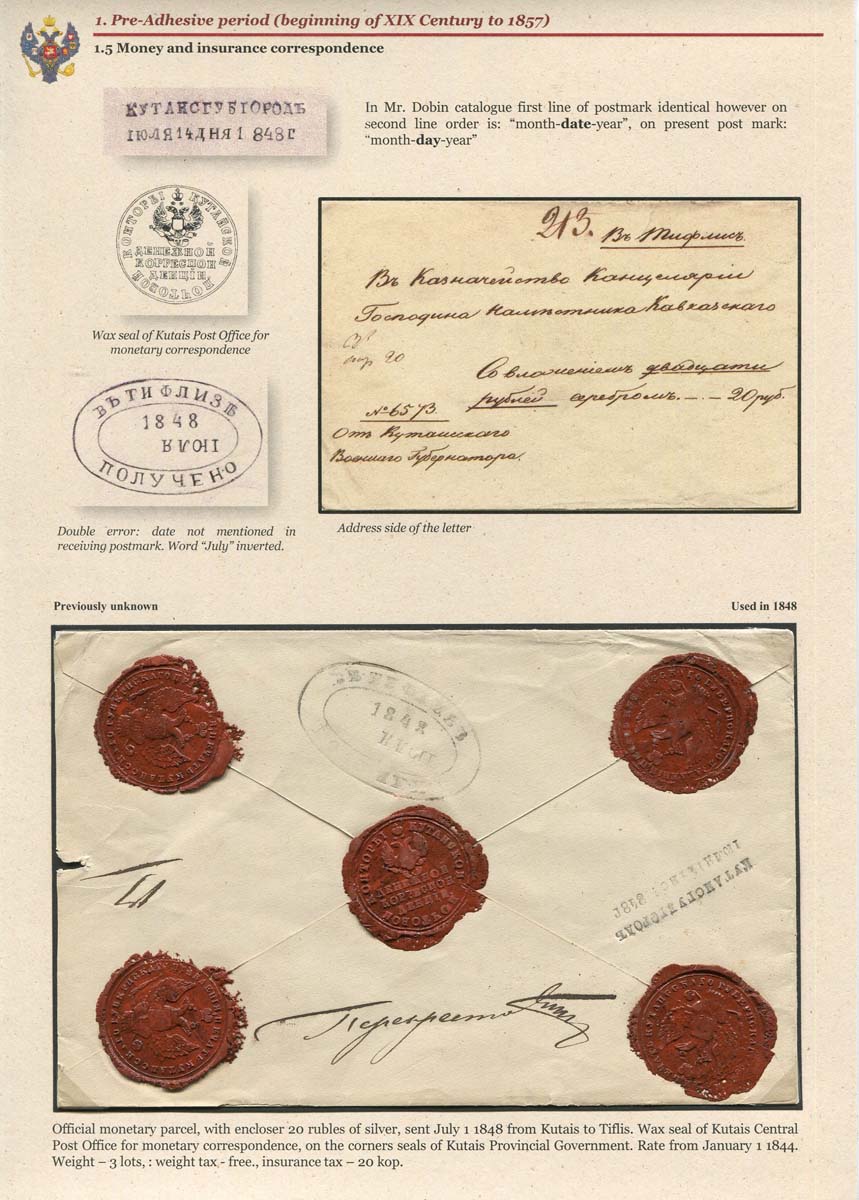 1. Pre-Adhesive period (beginning of XIX Century to 1857)
1.5 Money and insurance correspondence
КУТАИСГУБГОРОДЪ
IЮЛЯ 14 ДНЯ 1 848 Г
In Mr. Dobin catalogue first line of postmark identical however on
second line order is: “month-date-year”, on present post mark:
“month-day-year”
КУТАИСКОЙ ПОЧТОВОЙ КОНТОРЫ
ДЕНЕЖНОЙ
КОРРЕСПОН
ДЕНЦIИ
Wax seal of Kutais Post Office for
monetary correspondence
ВЪ ТИФЛИЗѢ
1848
IЮЛЯ
ПОЛУЧЕНО
Double error: date not mentioned in
receiving postmark. Word “July” inverted.
213. Въ Тифлисъ.
Въ Казначейство Канцелярiи
Господина Намѣстника Кавказскаго
20
Со вложенiемъ двадцати
рублей серебромъ. — – 20 руб.
№ 6573.
Отъ Кутаисскаго
Военнаго Губернатора.
Address side of the letter
Previously unknown
Used in 1848
1848
КУТАИСКОЙ ПОЧТОВОЙ КОНТОРЫ
ДЕНЕЖНОЙ
КУТАИСГУБГОРОДЪ
Official monetary parcel, with encloser 20 rubles of silver, sent July 1 1848 from Kutais to Tiflis. Wax seal of Kutais Central
Post Office for monetary correspondence, on the corners seals of Kutais Provincial Government. Rate from January 1 1844.
Weight – 3 lots, : weight tax - free., insurance tax – 20 kop.